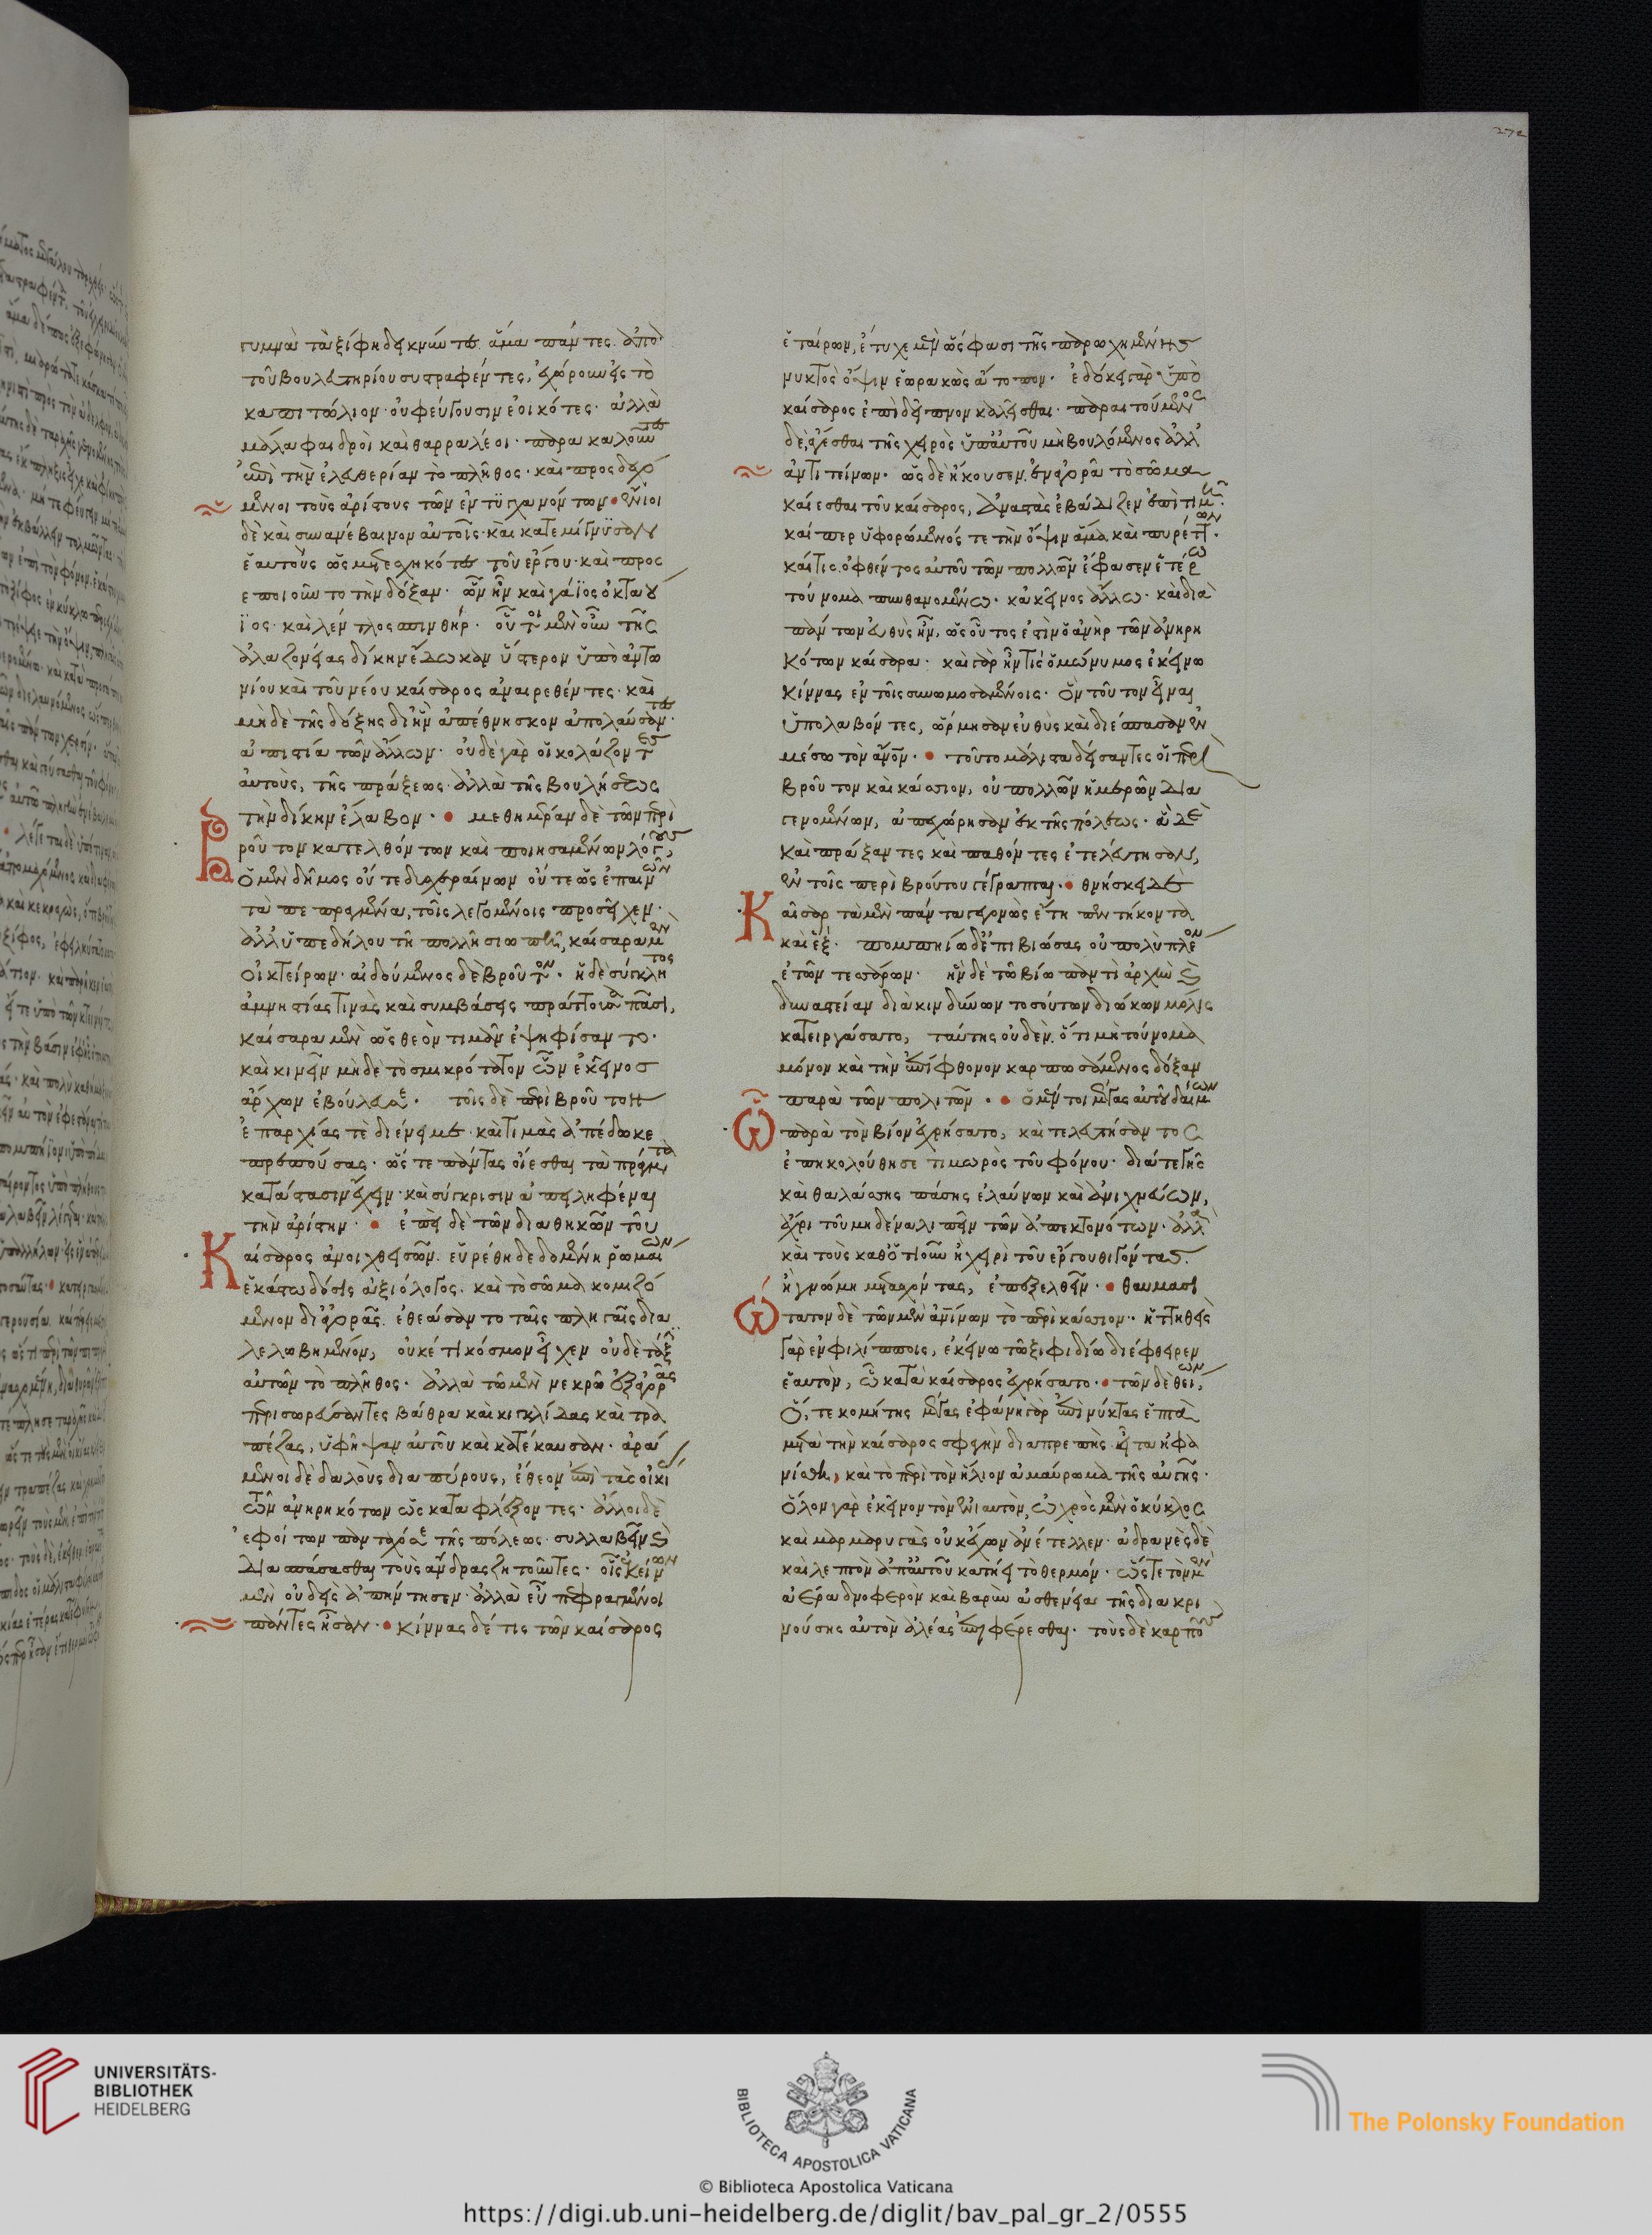 γυμνὰ τὰ ξίφη δεικνύντες ἅμα πάντες ἀπὸ
τοῦ βουλευτηρίου συστραφέντες, ἐχώρουν εἰς τὸ
καπιτώλιον· οὐ φεύγουσιν ἐοικότες· ἀλλὰ
μάλα φαιδροὶ καὶ θαρραλέοι· παρακαλοῦντες
ἐπὶ τὴν ἐλευθερίαν τὸ πλῆθος· καὶ προσδεχό
μενοι τοὺς ἀρίστους τῶν ἐντυγχανόντων· ἔνιοι
δὲ καὶ συνανέβαινον αὐτοῖς· καὶ κατεμίγνυσαν
ἑαυτοὺς ὡς μετεσχηκότες τοῦ ἔργου· καὶ προσ
εποιοῦντο τὴν δόξαν· ὧν ἦν καὶ γάϊος ὀκταού
ϊος· καὶ λέντλος σπινθήρ· οὗτοι μὲν οὖν τῆς
ἀλαζονείας δίκην ἔδωκαν ὕστερον ὑπὸ ἀντω
νίου καὶ τοῦ νέου καίσαρος ἀναιρεθέντες· καὶ
μηδὲ τῆς δόξης δι' ἣν ἀπέθνησκον ἀπολαύσαντες·
ἀπιστία τῶν ἄλλων· οὐδὲ γὰρ οἱ κολάζοντες
αὐτοὺς, τῆς πράξεως· ἀλλὰ τῆς βουλήσεως
τὴν δίκην ἔλαβον· μεθημέραν δὲ τῶν περὶ
βροῦτον κατελθόντων καὶ ποιησαμένων λόγους,
ὁ μὲν δῆμος οὔτε δυσχεραίνων οὔτε ὡς ἐπαινῶν
τὰ πεπραγμένα, τοῖς λεγομένοις προσεῖχεν·
ἀλλ' ὑπεδήλου τῇ πολλῇ σιωπῇ, καίσαρα μὲν
οἰκτείρων· αἰδούμενος δὲ βροῦτον· ἡ δὲ σύγκλητος
ἀμνηστίας τινὰς καὶ συμβάσεις πράττουσα πᾶσι,
καίσαρα μὲν ὡς θεὸν τιμᾶν ἐψηφίσαντο·
καὶ κινεῖν μηδὲ τὸ σμικρότατον ὧν ἐκεῖνος
ἄρχων ἐβούλευσε· τοῖς δὲ περὶ βροῦτον
ἐπαρχίας τε διένειμε· καὶ τιμὰς ἀπέδωκε
πρεπούσας· ὥστε πάντας οἴεσθαι τὰ πράγματα
κατάστασιν ἔχειν· καὶ σύγκρισιν ἀπειληφέναι
τὴν ἀρίστην· ἐπεὶ δὲ τῶν διαθηκῶν τοῦ
καίσαρος ἀνοιχθεισῶν· εὑρέθη δεδομένη ῥωμαίων
ἑκάστῳ δόσις ἀξιόλογος· καὶ τὸ σῶμα κομιζό
μενον δι' ἀγορᾶς· ἐθεάσαντο ταῖς πληγαῖς δια
λελωβημένον, οὐκέτι κόσμον εἶχεν οὐδὲ τάξιν
αὐτῶν τὸ πλῆθος· ἀλλὰ τῷ μὲν νεκρῷ ἐξ ἀγορᾶς
περισωρεύσαντες βάθρα καὶ κιγκλίδας καὶ τρα
πέζας, ὑφῆψαν αὐτοῦ καὶ κατέκαυσαν· ἀρά
μενοι δὲ δαλοὺς διαπύρους, ἔθεον ἐπὶ τὰς οἰκί
τῶν ἀνηρηκότων ὡς καταφλέξοντες· ἄλλοι δὲ
ἐφοίτων πανταχόσε τῆς πόλεως· συλλαβεῖν καὶ
διασπάσασθαι τοὺς ἄνδρας ζητοῦντες· οἷς ἐκείνων
μὲν οὐδεὶς ἀπήντησεν· ἀλλὰ εὖ πεφραγμένοι
πάντες ἦσαν· κίννας δέ τις τῶν καίσαρος
ἑταίρων, ἔτυχε μὲν ὥς φασι τῆς παρῳχημένης
νυκτὸς ὄψιν ἑωρακὼς ἄτοπον· ἐδόκει γὰρ ὑπὸ
καίσαρος ἐπὶ δεῖπνον καλεῖσθαι· παραιτούμενος
δὲ, ἄγεσθαι τῆς χειρὸς ὑπ' αὐτοῦ μὴ βουλόμενος ἀλλ'
ἀντιτείνων· ὡς δὲ ἤκουσεν ἐν ἀγορᾷ τὸ σῶμα
καίεσθαι τοῦ καίσαρος, ἀναστὰς ἐβάδιζεν ἐπὶ τιμῇ·
καίπερ ὑφορώμενός τε τὴν ὄψιν ἅμα καὶ πυρέττων·
καί τις ὀφθέντος αὐτοῦ τῶν πολλῶν ἔφρασεν ἑτέρῳ
τοὔνομα πυνθανομένῳ· κἀκεῖνος ἄλλῳ· καὶ διὰ
πάντων εὐθὺς ἦν, ὡς οὗτός ἐστιν ὁ ἀνὴρ τῶν ἀνῃρη
κότων καίσαρα· καὶ γὰρ ἦν τις ὁμώνυμος ἐκείνῳ
κίννας ἐν τοῖς συνομοσαμένοις· ὃν τοῦτον εἶναι
ὑπολαβόντες, ὥρμησαν εὐθὺς καὶ διέσπασαν ἐν
μέσῳ τὸν ἄνον· τοῦτο μάλιστα δείσαντες οἱ περὶ
βροῦτον καὶ κάσσιον, οὐ πολλῶν ἡμερῶν δια
γενομένων, ἀπεχώρησαν ἐκ τῆς πόλεως· ἃ δὲ
καὶ πράξαντες καὶ παθόντες ἐτελεύτησαν,
ἐν τοῖς περὶ βρούτου γέγραπται· θνήσκει δὲ
καῖσαρ τὰ μὲν πάντα γεγονὼς ἔτη πεντήκοντα
καὶ ἕξ· πομπηίῳ δ' ἐπιβιώσας οὐ πολὺ πλέον
ἐτῶν τεσσάρων· ἣν δὲ τῷ βίῳ παντὶ ἀρχὴν καὶ
δυναστείαν διὰ κινδύνων τοσούτων διώκων μόλις
κατειργάσατο, ταύτης οὐδὲν ὅτι μὴ τοὔνομα
μόνον καὶ τὴν ἐπίφθονον καρπωσάμενος δόξαν
παρὰ τῶν πολιτῶν· ὁ μέντοι μέγας αὐτοῦ δαίμων
ᾧ παρὰ τὸν βίον ἐχρήσατο, καὶ τελευτήσαντος
ἐπηκολούθησε τιμωρὸς τοῦ φόνου· διά τε γῆς
καὶ θαλάσσης πάσης ἐλαύνων καὶ ἀνιχνεύων,
ἄχρι τοῦ μηδένα λιπεῖν τῶν ἀπεκτονότων· ἀλλὰ
καὶ τοὺς καθ' ὁτιοῦν ἢ χειρὶ τοῦ ἔργου θιγόντας
ἢ γνώμῃ μετασχόντας, ἐπεξελθεῖν· θαυμασι
ώτατον δὲ τῶν μὲν ἀνίνων τὸ περὶ κάσσιον· ἡττηθεὶς
γὰρ ἐν φιλίπποις, ἐκείνῳ τῷ ξιφιδίῳ διέφθειρεν
ἑαυτὸν, ᾧ κατὰ καίσαρος ἐχρήσατο· τῶν δὲ θείων,
ὅ, τε κομήτης μέγας ἐφάνη γὰρ ἐπὶ νύκτας ἑπτὰ
μετὰ τὴν καίσαρος σφαγὴν διαπρεπὴς εἶτα ἠφα
νίσθη, καὶ τὸ περὶ τὸν ἥλιον ἀμαύρωμα τῆς αὐγῆς·
ὅλον γὰρ ἐκεῖνον τὸν ἐνιαυτὸν, ὠχρὸς μὲν ὁ κύκλος
καὶ μαρμαρυγὰς οὐκ ἔχων ἀνέτελλεν· ἀδρανὲς δὲ
καὶ λεπτὸν ἀπ' αὐτοῦ κατῄει τὸ θερμόν· ὥστε τὸν μὲν
ἀέρα δνοφερὸν καὶ βαρὺν ἀσθενείᾳ τῆς διακρι
νούσης αὐτὸν ἀλέας ἐπιφέρεσθαι· τοὺς δὲ καρποὺς
UNIVERSITÄTS-
BIBLIOTHEK
HEIDELBERG
BIBLIOTECA APOSTOLICA VATICANA
The Polonsky Foundation
© Biblioteca Apostolica Vaticana
https://digi.ub.uni-heidelberg.de/diglit/bav_pal_gr_2/0555